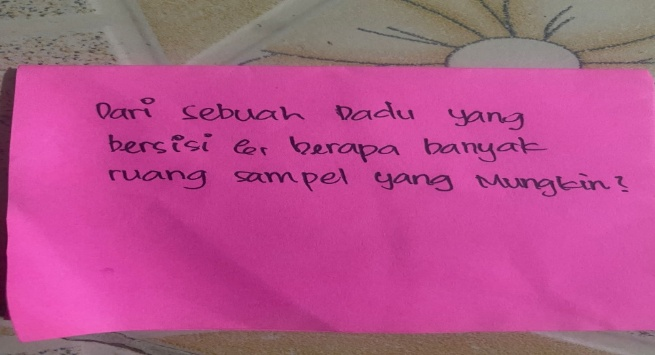 Dari sebuah Dadu yang
bersisi berapa banyak
ruang sampel yang Mungkin?